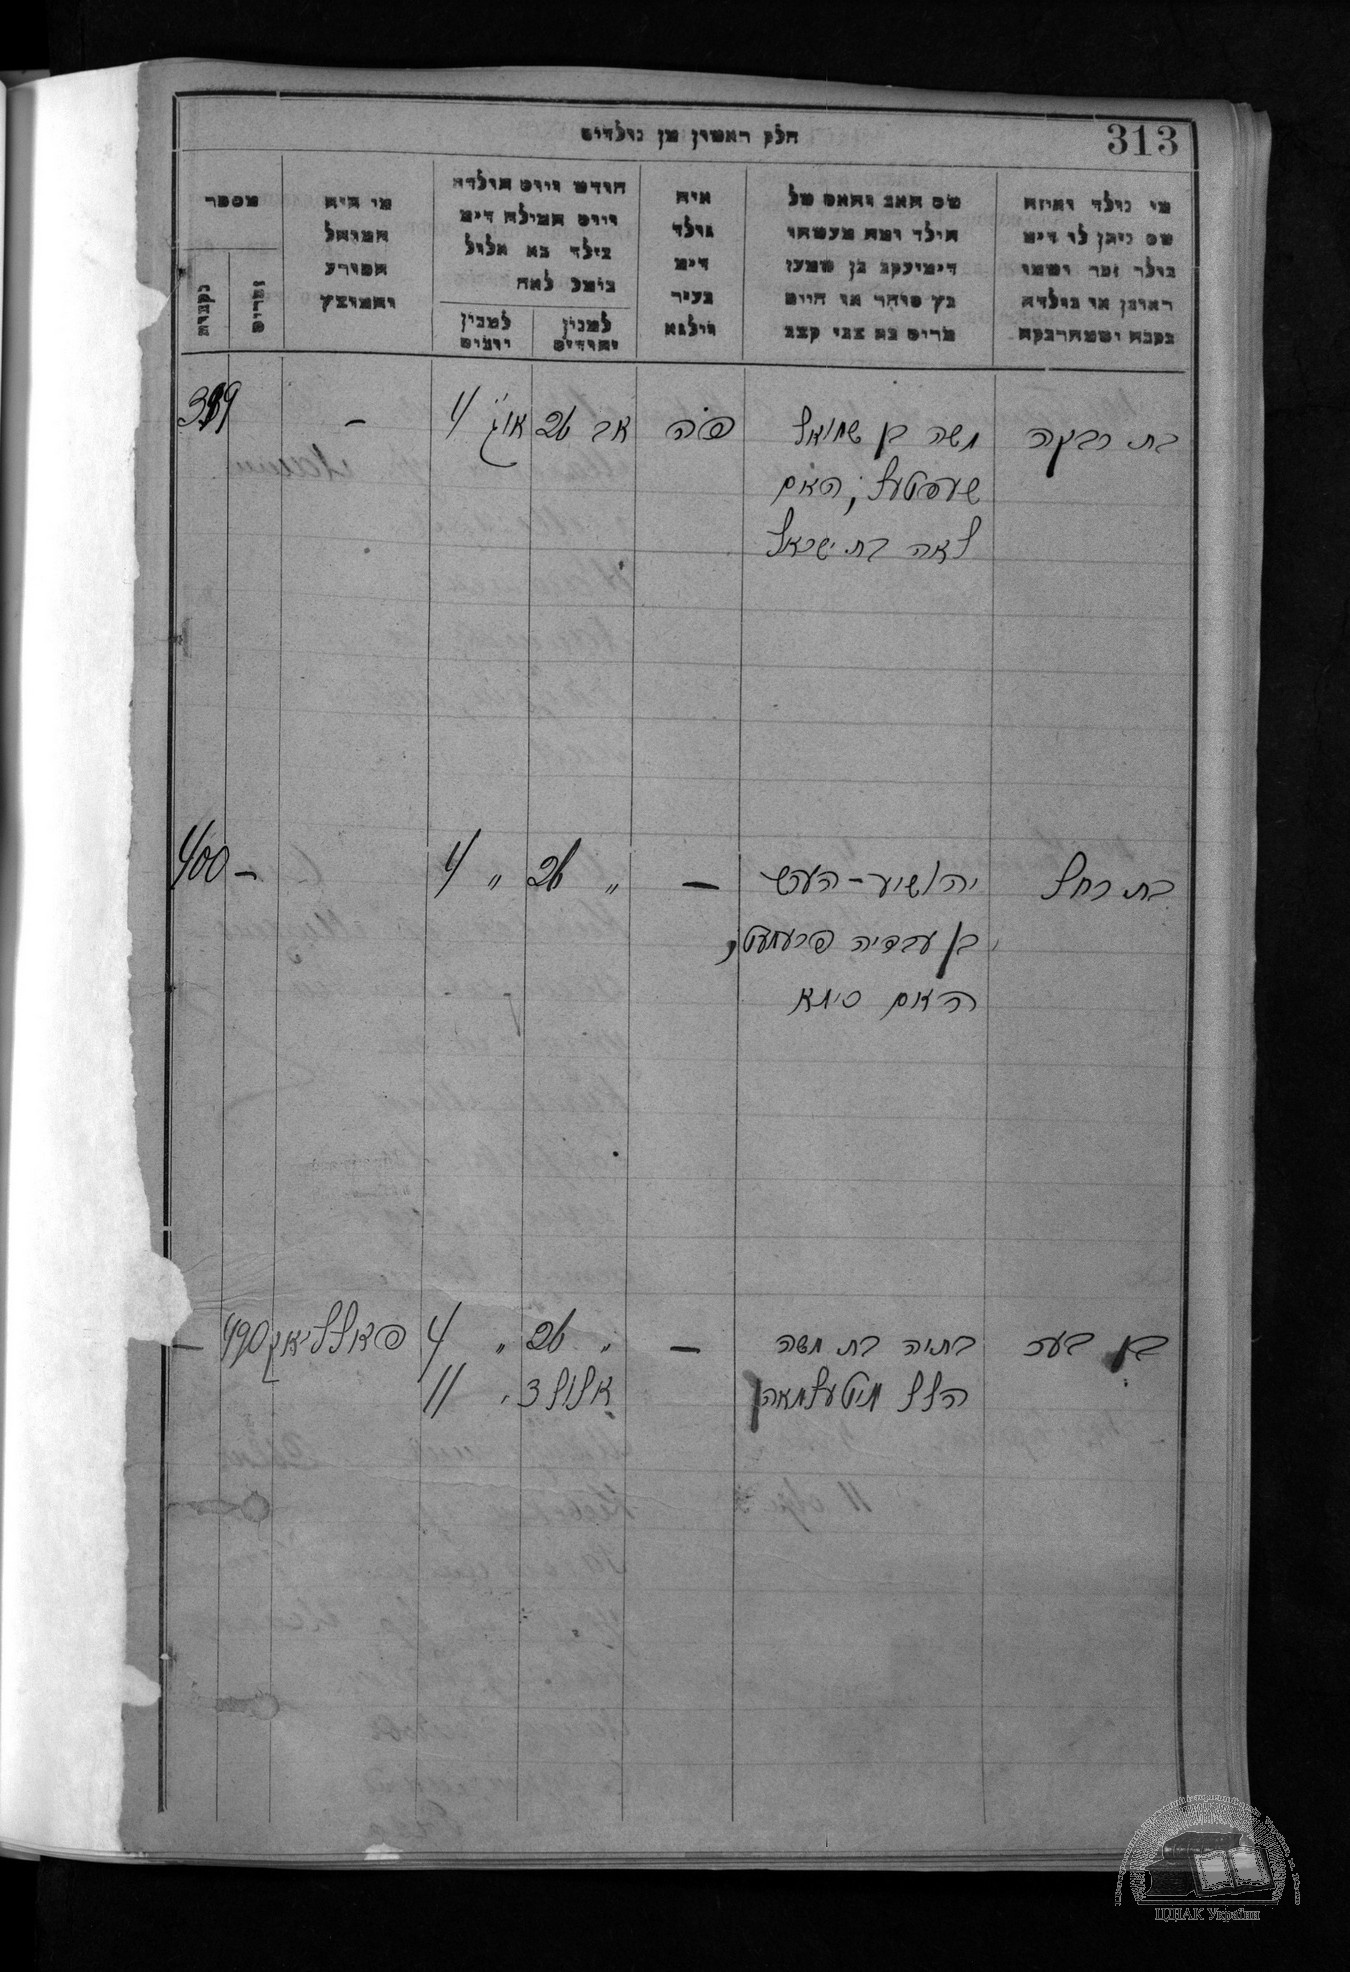 313
חלק ראשון מן נולדים
מי נולד ואיזה
שם ניתן לו דימ
בילד זכר ושמו
ראובן או בילדה
נקבה ושמהרבקה
שם האב והאם של
הילד ומה מעשהו
דימיעקב בן שמעון
כץ סוחר או חיים
מרים בת צבי קצב
איה
נולד
דימ
בעיר
ווילנא
חודש ויום הולדה
ויום המילה דימ
בילד בא אלול
נימול לאח
למנין
יהודים
למנין
יונים
מי היה
המוהל
הפורע
והמוצץ
מספר
זכרים
נקבות
בת רבקה
משה בן שמואל
שעפטעל, האם
לאה בת ישראל
פ״ה
אב 26
אויג׳ 4
—
399
בת רחל
יהושיע-העש
בן עבדיה פרעמעט,
האם סימא
—
״ 26
״ 4
—
400
בן בער
בתיה בת משה
הלל מיטעלמאן
—
״ 26
אלול 3
״ 4
׳ 11
פאלליאק
490
—
ЦДІАК України